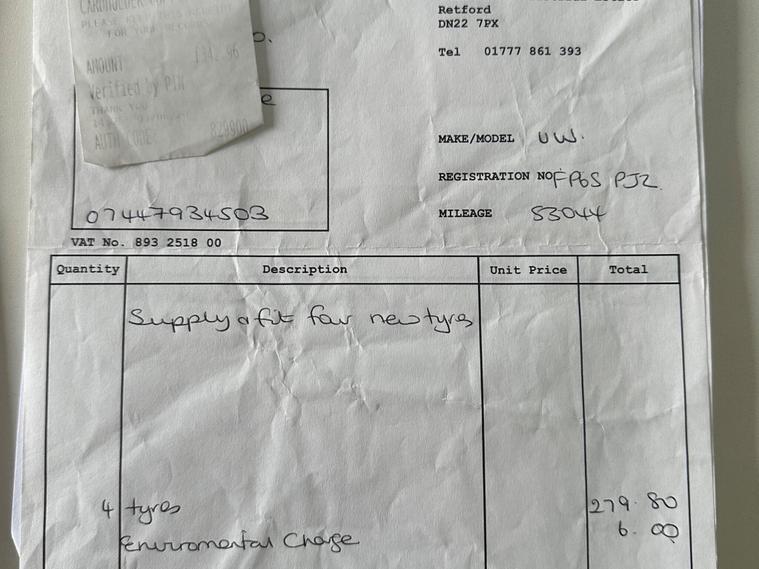 Retford
DN22 7PX
Tel 01777 861 393
CARDHOLDER
PLEASE
FOR YOUR
AMOUNT £342.96
Verified by PIN
THANK YOU
AUTH CODE:
o.
e
07447934503
VAT No. 893 2518 00
MAKE/MODEL VW.
REGISTRATION NO FP65 PJZ.
MILEAGE 53044
Quantity Description Unit Price Total
Supply & fit four new tyres
4 tyres 279.80
Enviromental Charge 6.00